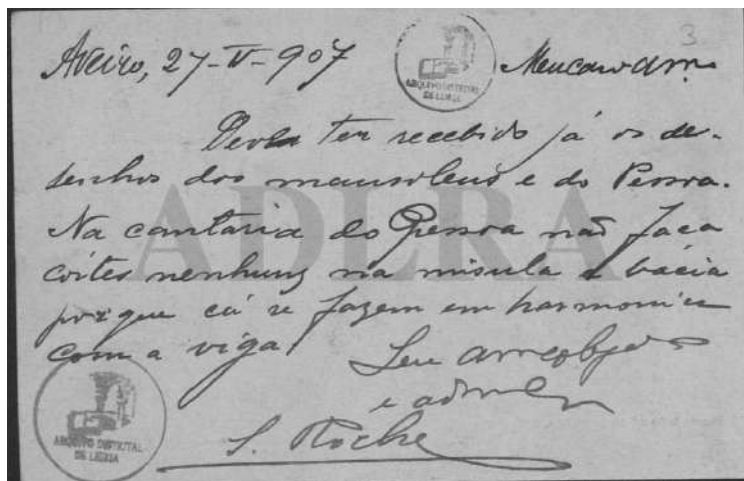 3
Aveiro, 27-V-907 Meu caro am.º
ARQUIVO DISTRITAL
DE LEIRIA
Deve ter recebido já os de-
senhos dos mausoleus e do Pessoa.
ADLRA
Na cantaria do Pessoa não faca
córtes nenhuns na misula e bacia
porque cá se fazem em harmonia
com a viga.
Seu am.º obgdo
e adm
S. Rocha
ARQUIVO DISTRITAL
DE LEIRIA